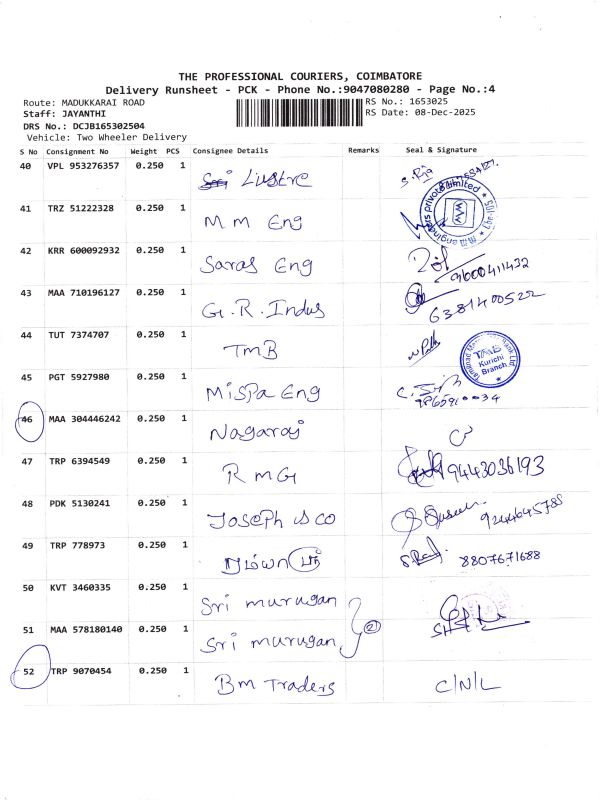 THE PROFESSIONAL COURIERS, COIMBATORE
Delivery Runsheet - PCK - Phone No.:9047080280 - Page No.:4
Route: MADUKKARAI ROAD RS No.: 1653025
Staff: JAYANTHI RS Date: 08-Dec-2025
DRS No.: DCJB165302504
Vehicle: Two Wheeler Delivery
S No Consignment No Weight PCS Consignee Details Remarks Seal & Signature
40 VPL 953276357 0.250 1 Lustre
41 TRZ 51222328 0.250 1 M m Eng
42 KRR 600092932 0.250 1 Saras Eng 9600411432
43 MAA 710196127 0.250 1 G.R.Indus 6381400522
44 TUT 7374707 0.250 1 TMB TMB Kurichi Branch
45 PGT 5927980 0.250 1 Mispa Eng
46 MAA 304446242 0.250 1 Nagaraj
47 TRP 6394549 0.250 1 R M G 9443036193
48 PDK 5130241 0.250 1 Joseph & co 9244645788
49 TRP 778973 0.250 1 8807671688
50 KVT 3460335 0.250 1 Sri murugan
51 MAA 578180140 0.250 1 Sri murugan 2
52 TRP 9070454 0.250 1 Bm Traders C/N/L